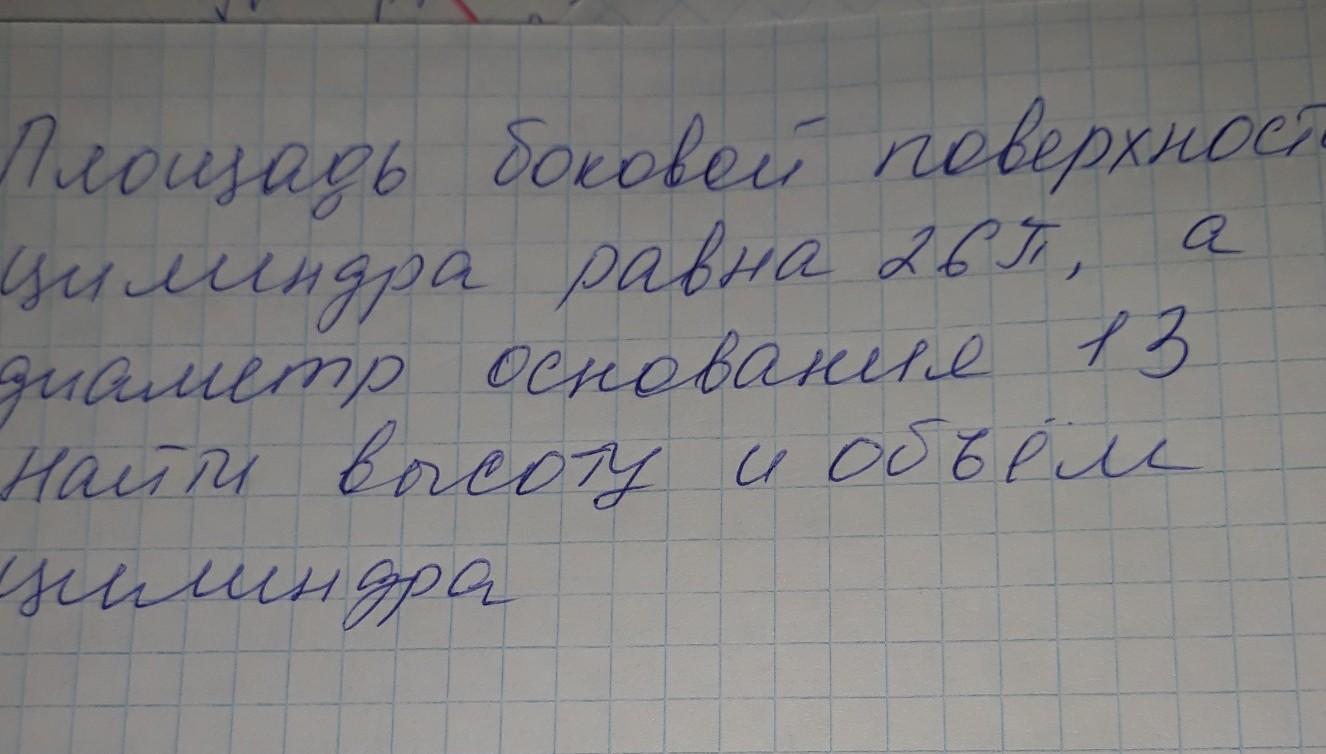 Площадь боковой поверхност
цилиндра равна 26π, а
диаметр основания 13
найти высоту и объём
цилиндра